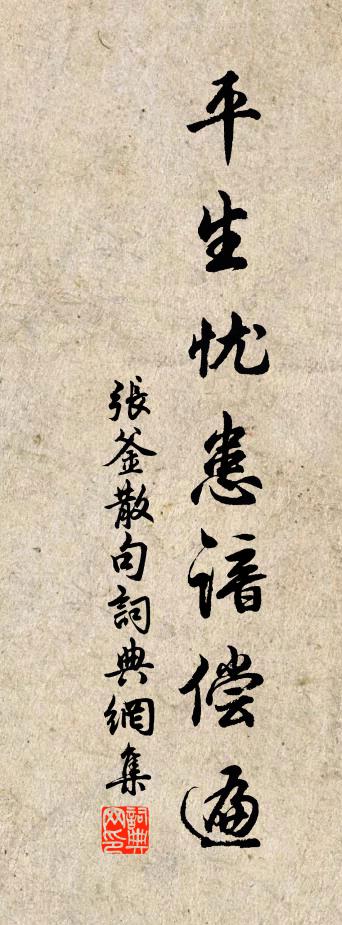 平生忧患谙偿遍
張釜散句詞典網集
詞典网印